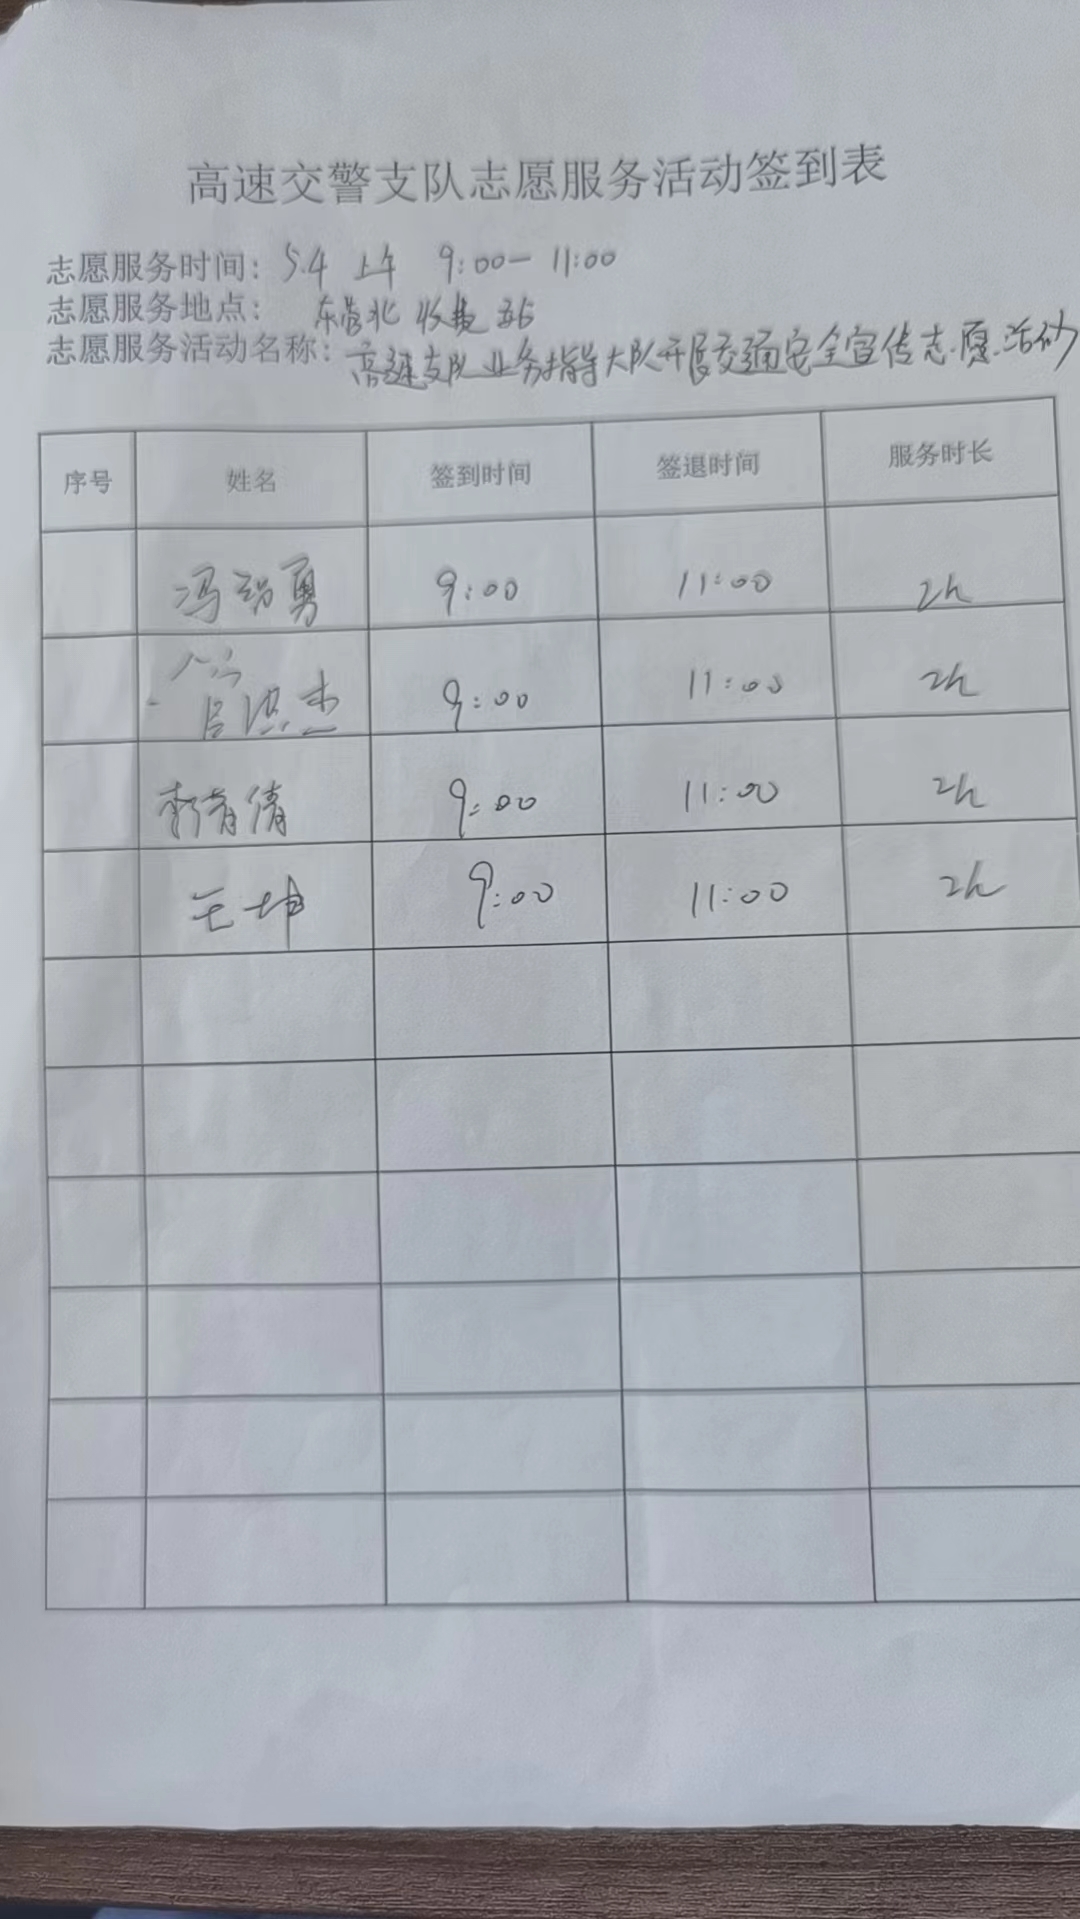 高速交警支队志愿服务活动签到表
志愿服务时间：5.4 上午 9:00－11:00
志愿服务地点： 东营北 收费站
志愿服务活动名称：高速支队业务指导大队开展交通安全宣传志愿活动
序号 姓名 签到时间 签退时间 服务时长
冯 勇 9:00 11:00 2h
9:00 11:00 2h
倩 9:00 11:00 2h
王坤 9:00 11:00 2h